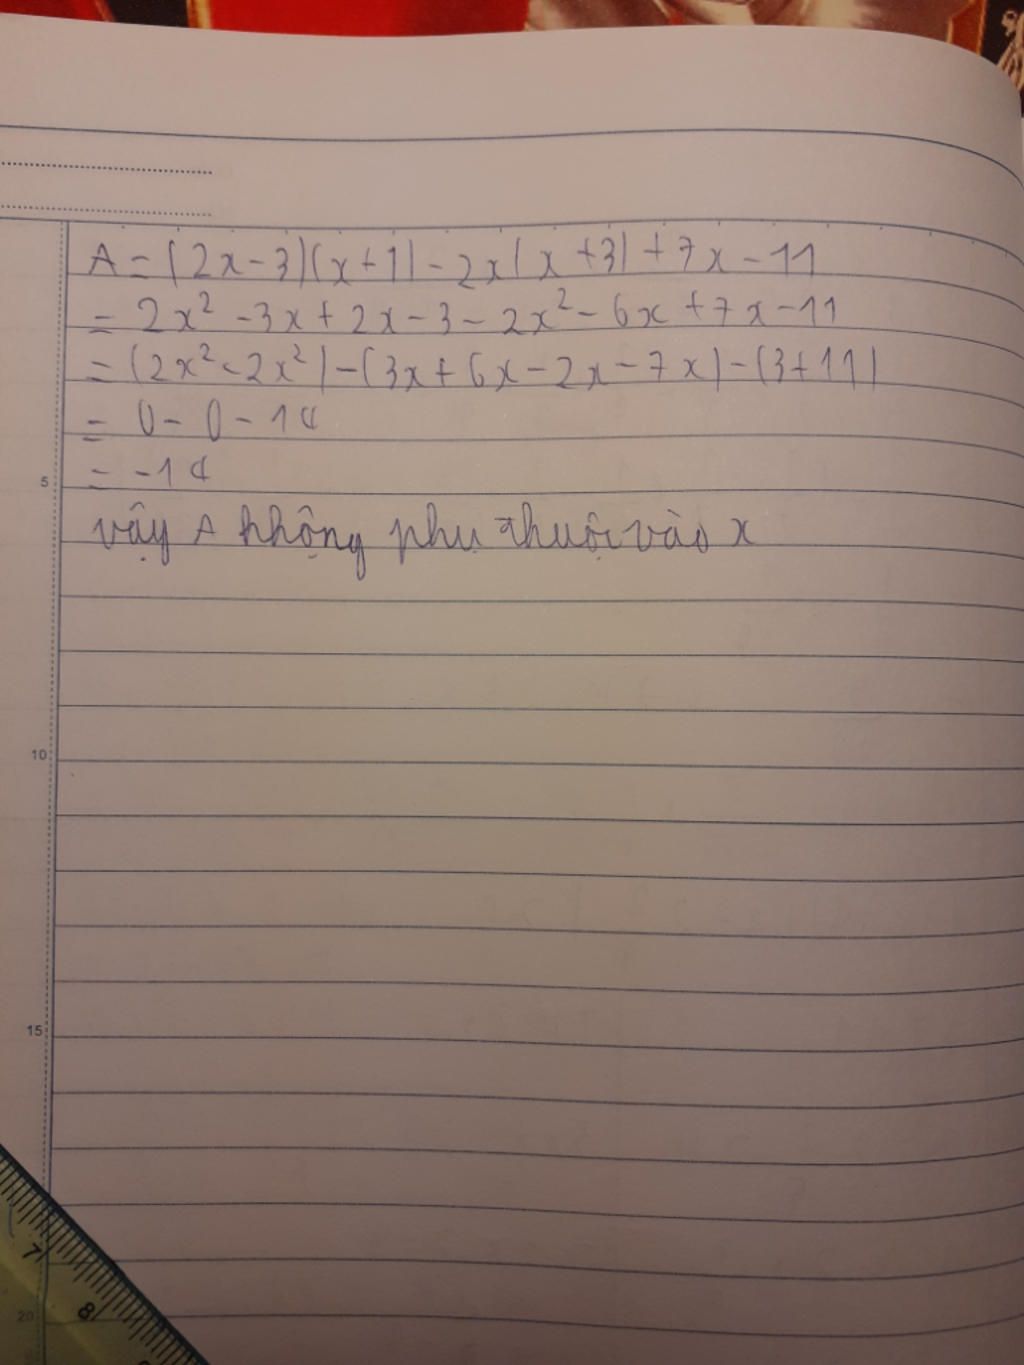 A = (2x - 3)(x + 1) - 2x(x + 3) + 7x - 11
= 2x² - 3x + 2x - 3 - 2x² - 6x + 7x - 11
= (2x² - 2x²) - (3x + 6x - 2x - 7x) - (3 + 11)
= 0 - 0 - 14
= -14
5
vậy A không phụ thuộc vào x
10
15
7
8
20